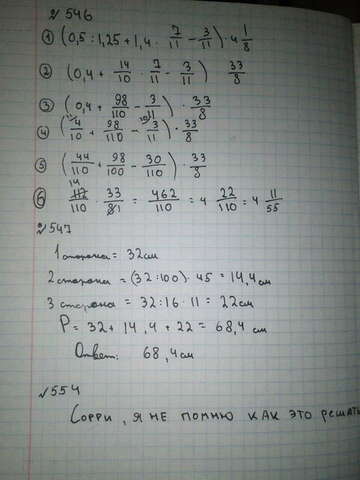 № 546
1) (0,5 : 1,25 + 1,4 · 7/11 − 3/11) · 4 1/8
2) (0,4 + 14/10 · 7/11 − 3/11) 33/8
3) (0,4 + 98/110 − 3/11) · 33/8
4) (4/10 + 98/110 − 3/11) · 33/8
5) (44/110 + 98/100 − 30/110) · 33/8
6) 112/110 · 33/8 = 462/110 = 4 22/110 = 4 11/55
№ 547
1 сторона = 32 см
2 сторона = (32:100) · 45 = 14,4 см
3 сторона = 32:16 · 11 = 22 см
P = 32 + 14,4 + 22 = 68,4 см
Ответ: 68,4 см
№ 554
Сорри, я не помню как это решать